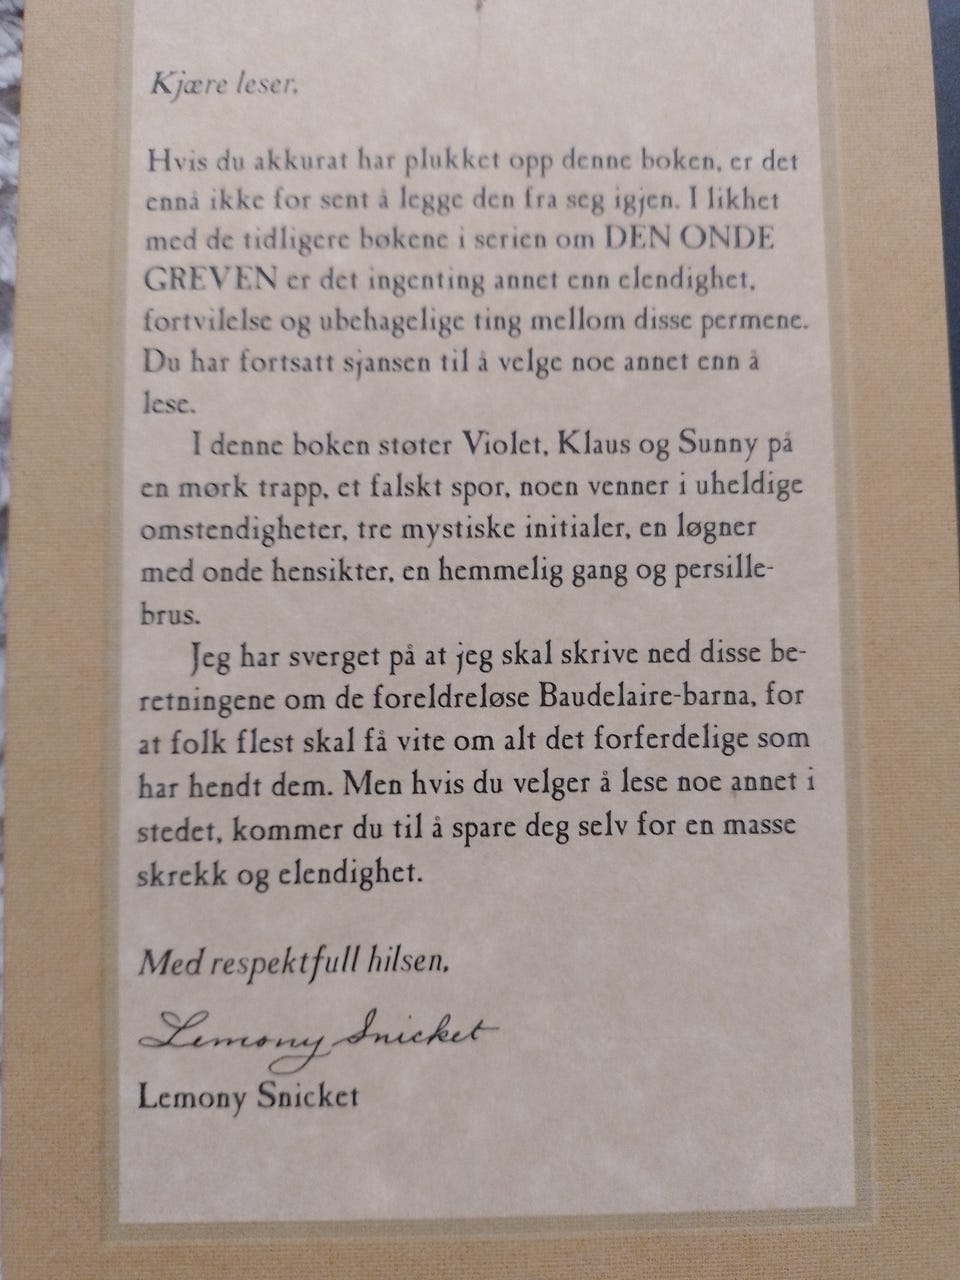 Kjære leser,
Hvis du akkurat har plukket opp denne boken, er det
ennå ikke for sent å legge den fra seg igjen. I likhet
med de tidligere bøkene i serien om DEN ONDE
GREVEN er det ingenting annet enn elendighet,
fortvilelse og ubehagelige ting mellom disse permene.
Du har fortsatt sjansen til å velge noe annet enn å
lese.
I denne boken støter Violet, Klaus og Sunny på
en mørk trapp, et falskt spor, noen venner i uheldige
omstendigheter, tre mystiske initialer, en løgner
med onde hensikter, en hemmelig gang og persille-
brus.
Jeg har sverget på at jeg skal skrive ned disse be-
retningene om de foreldreløse Baudelaire-barna, for
at folk flest skal få vite om alt det forferdelige som
har hendt dem. Men hvis du velger å lese noe annet i
stedet, kommer du til å spare deg selv for en masse
skrekk og elendighet.
Med respektfull hilsen,
Lemony Snicket
Lemony Snicket